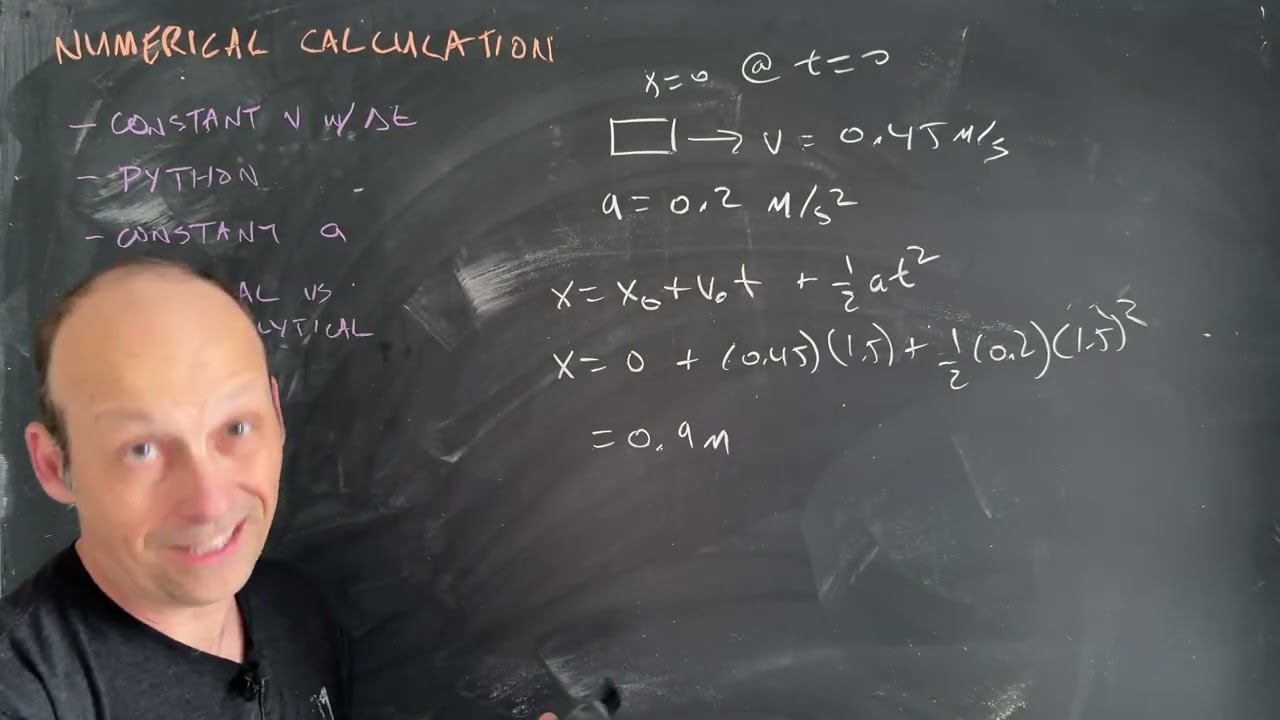 NUMERICAL CALCULATION
- CONSTANT V W/ Δt
- PYTHON
- CONSTANT a
AL VS
LYTICAL
x=0 @ t=0
→ v = 0.45 M/s
a = 0.2 M/s2
x = x₀ + v₀t + ½at²
x = 0 + (0.45)(1.5) + ½(0.2)(1.5)²
= 0.9 M